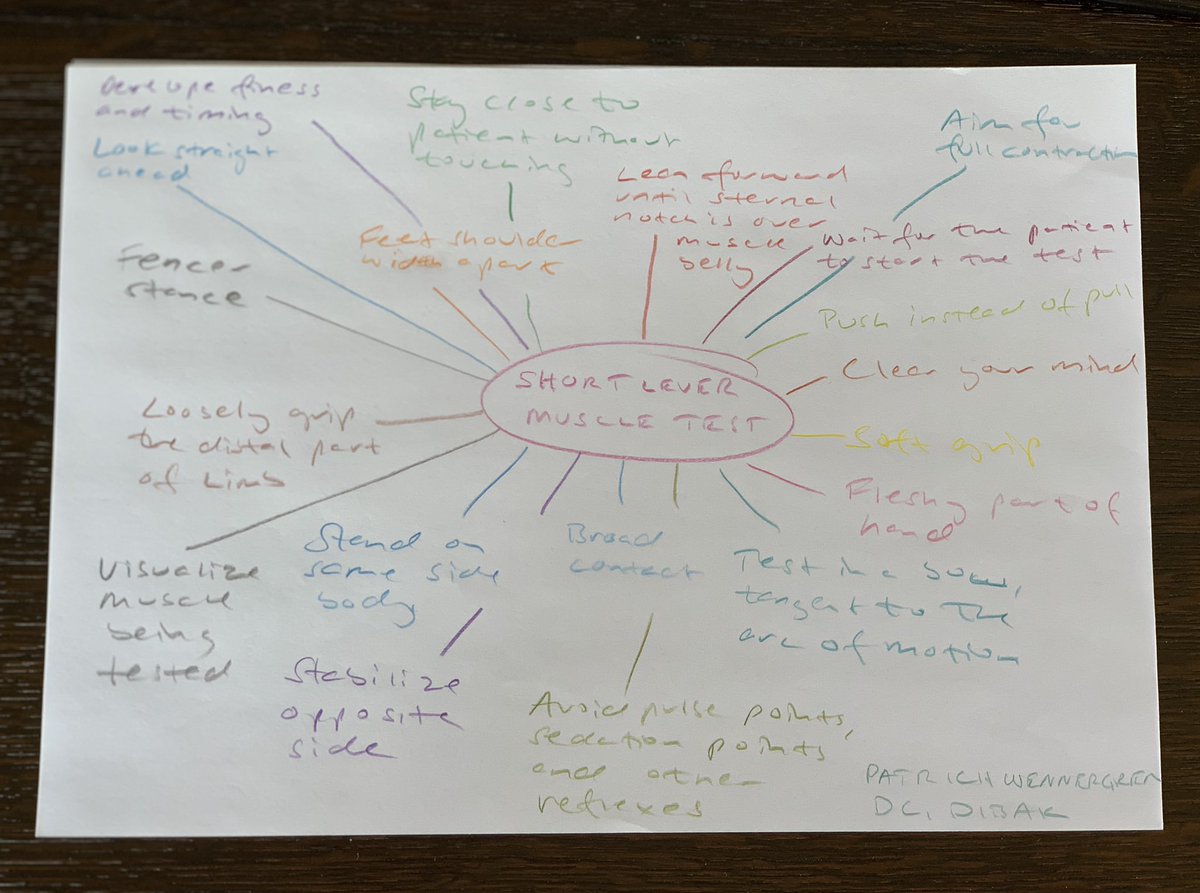 Develope finess
and timing
Look straight
ahead
Stay close to
patient without
touching
Aim for
full contraction
Lean forward
until sternal
notch is over
muscle
belly
Wait for the patient
to start the test
Feet shoulder
width apart
Fencer
stance
Push instead of pull
Clear your mind
SHORT LEVER
MUSCLE TEST
Loosely grip
the distal part
of Limb
Soft grip
Fleshy part of
hand
Stand on
same side
body
Broad
contact
Test in a bow,
tangent to the
arc of motion
Visualize
muscle
being
tested
Stabilize
opposite
side
Avoid pulse points,
sedation points,
and other
reflexes
PATRICH WENNERGREN
DC, DIBAK